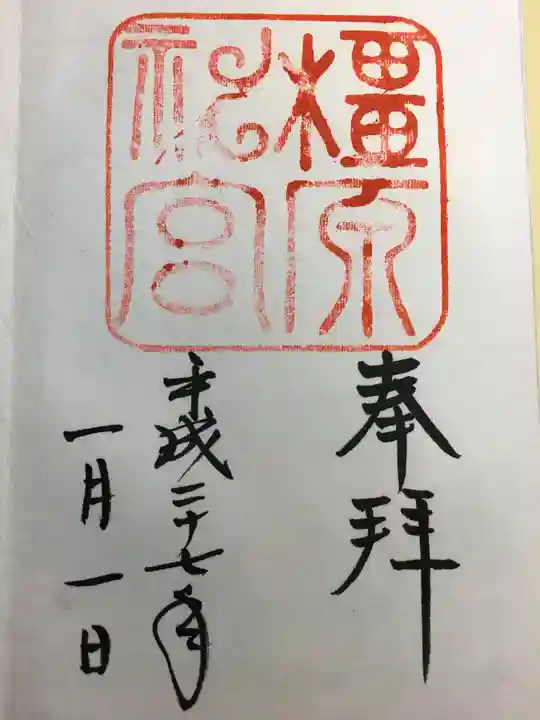 橿原
神宮
奉拝
平成二十七年
一月一日